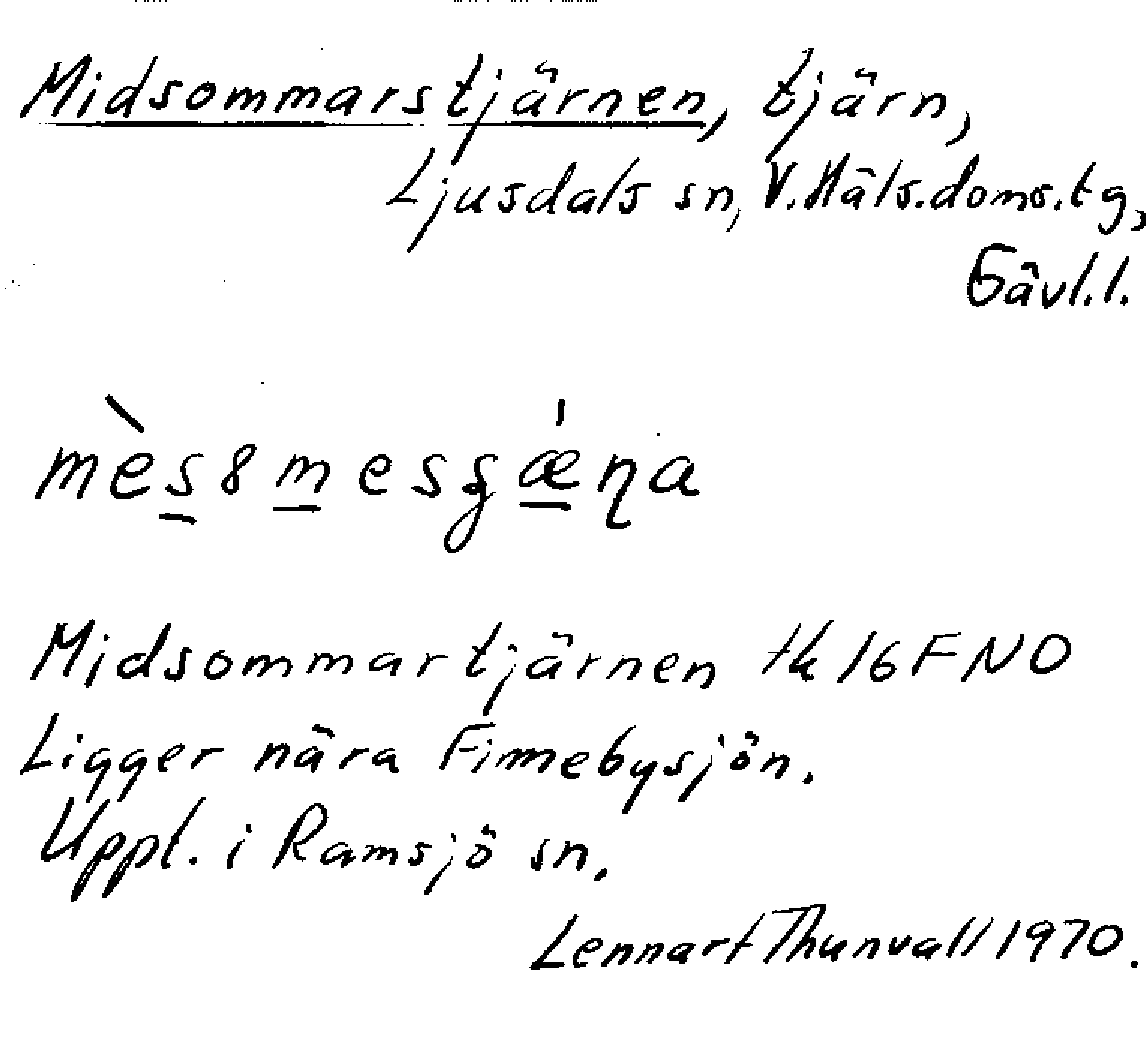 Midsommarstjärnen, tjärn,
Ljusdals sn, V. Häls. doms. tg,
Gävl. l.
mès8messʒǽɳa
Midsommartjärnen tk 16F NO
Ligger nära Finnebysjön.
Uppt. i Ramsjö sn.
Lennart Thunvall 1970.